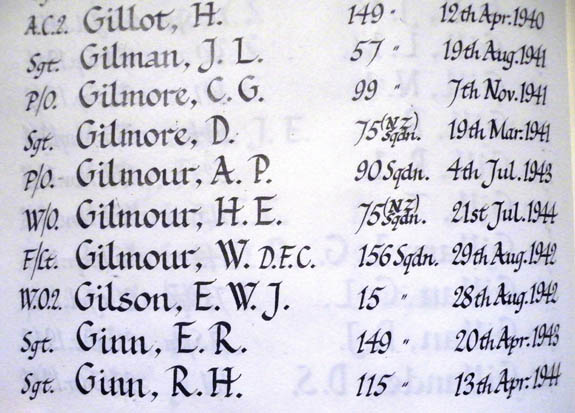 A.C.2. Gillot, H. 149 " 12th Apr. 1940
Sgt. Gilman, J. L. 57 " 19th Aug. 1941
P/O. Gilmore, C. G. 99 " 7th Nov. 1941
Sgt. Gilmore, D. 75 (NZ) Sqdn. 19th Mar. 1941
P/O. Gilmour, A. P. 90 Sqdn. 4th Jul. 1943
W/O. Gilmour, H. E. 75 (NZ) Sqdn. 21st Jul. 1944
F/Lt. Gilmour, W. D.F.C. 156 Sqdn. 29th Aug. 1942
W.O.2. Gilson, E. W. J. 15 " 28th Aug. 1942
Sgt. Ginn, E. R. 149 " 20th Apr. 1943
Sgt. Ginn, R. H. 115 " 13th Apr. 1944